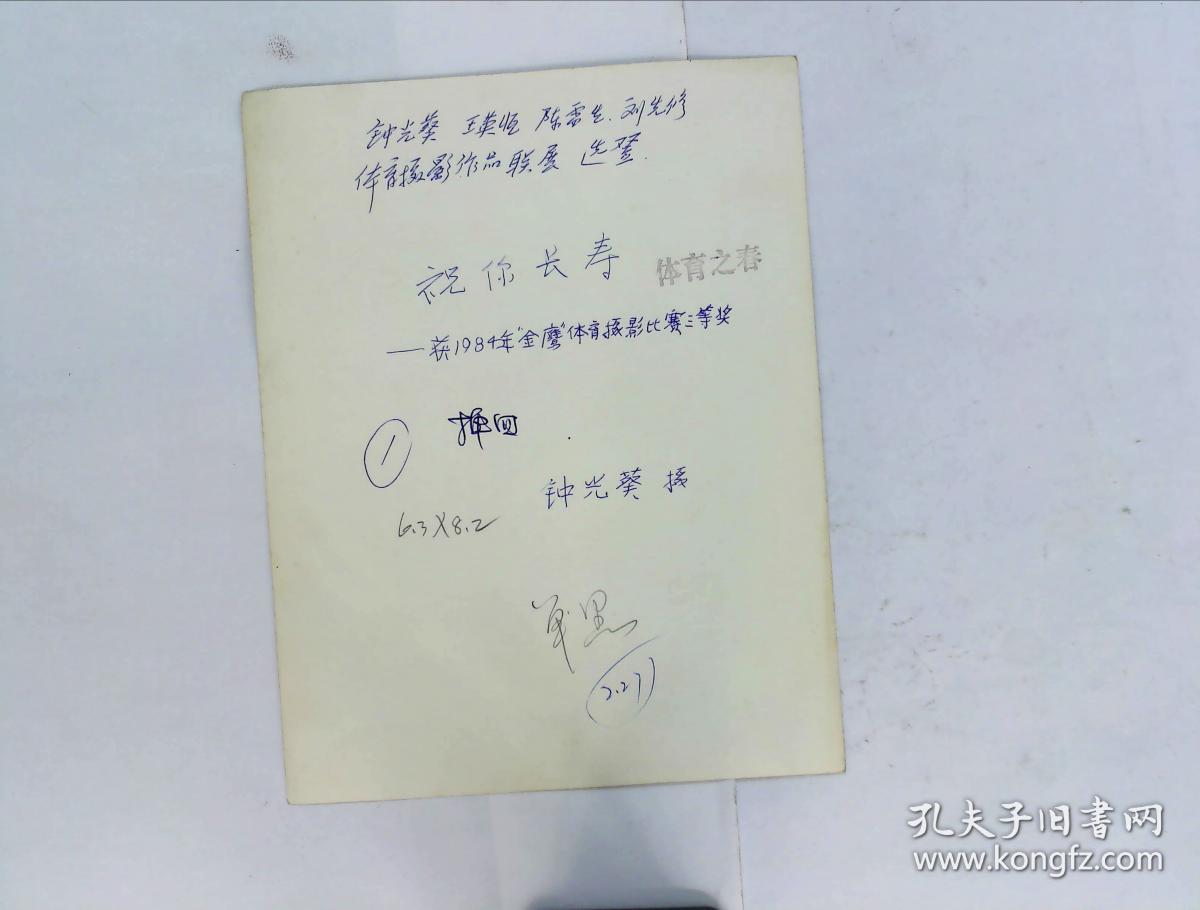 钟光葵 王英恒 陈雷生.刘先修
体育摄影作品联展 选登.
祝你长寿 体育之春
——获1984年"金鹰"体育摄影比赛三等奖
① 插四
钟光葵 摄
6.3X8.2
单黑
2.27
孔夫子旧书网
www.kongfz.com